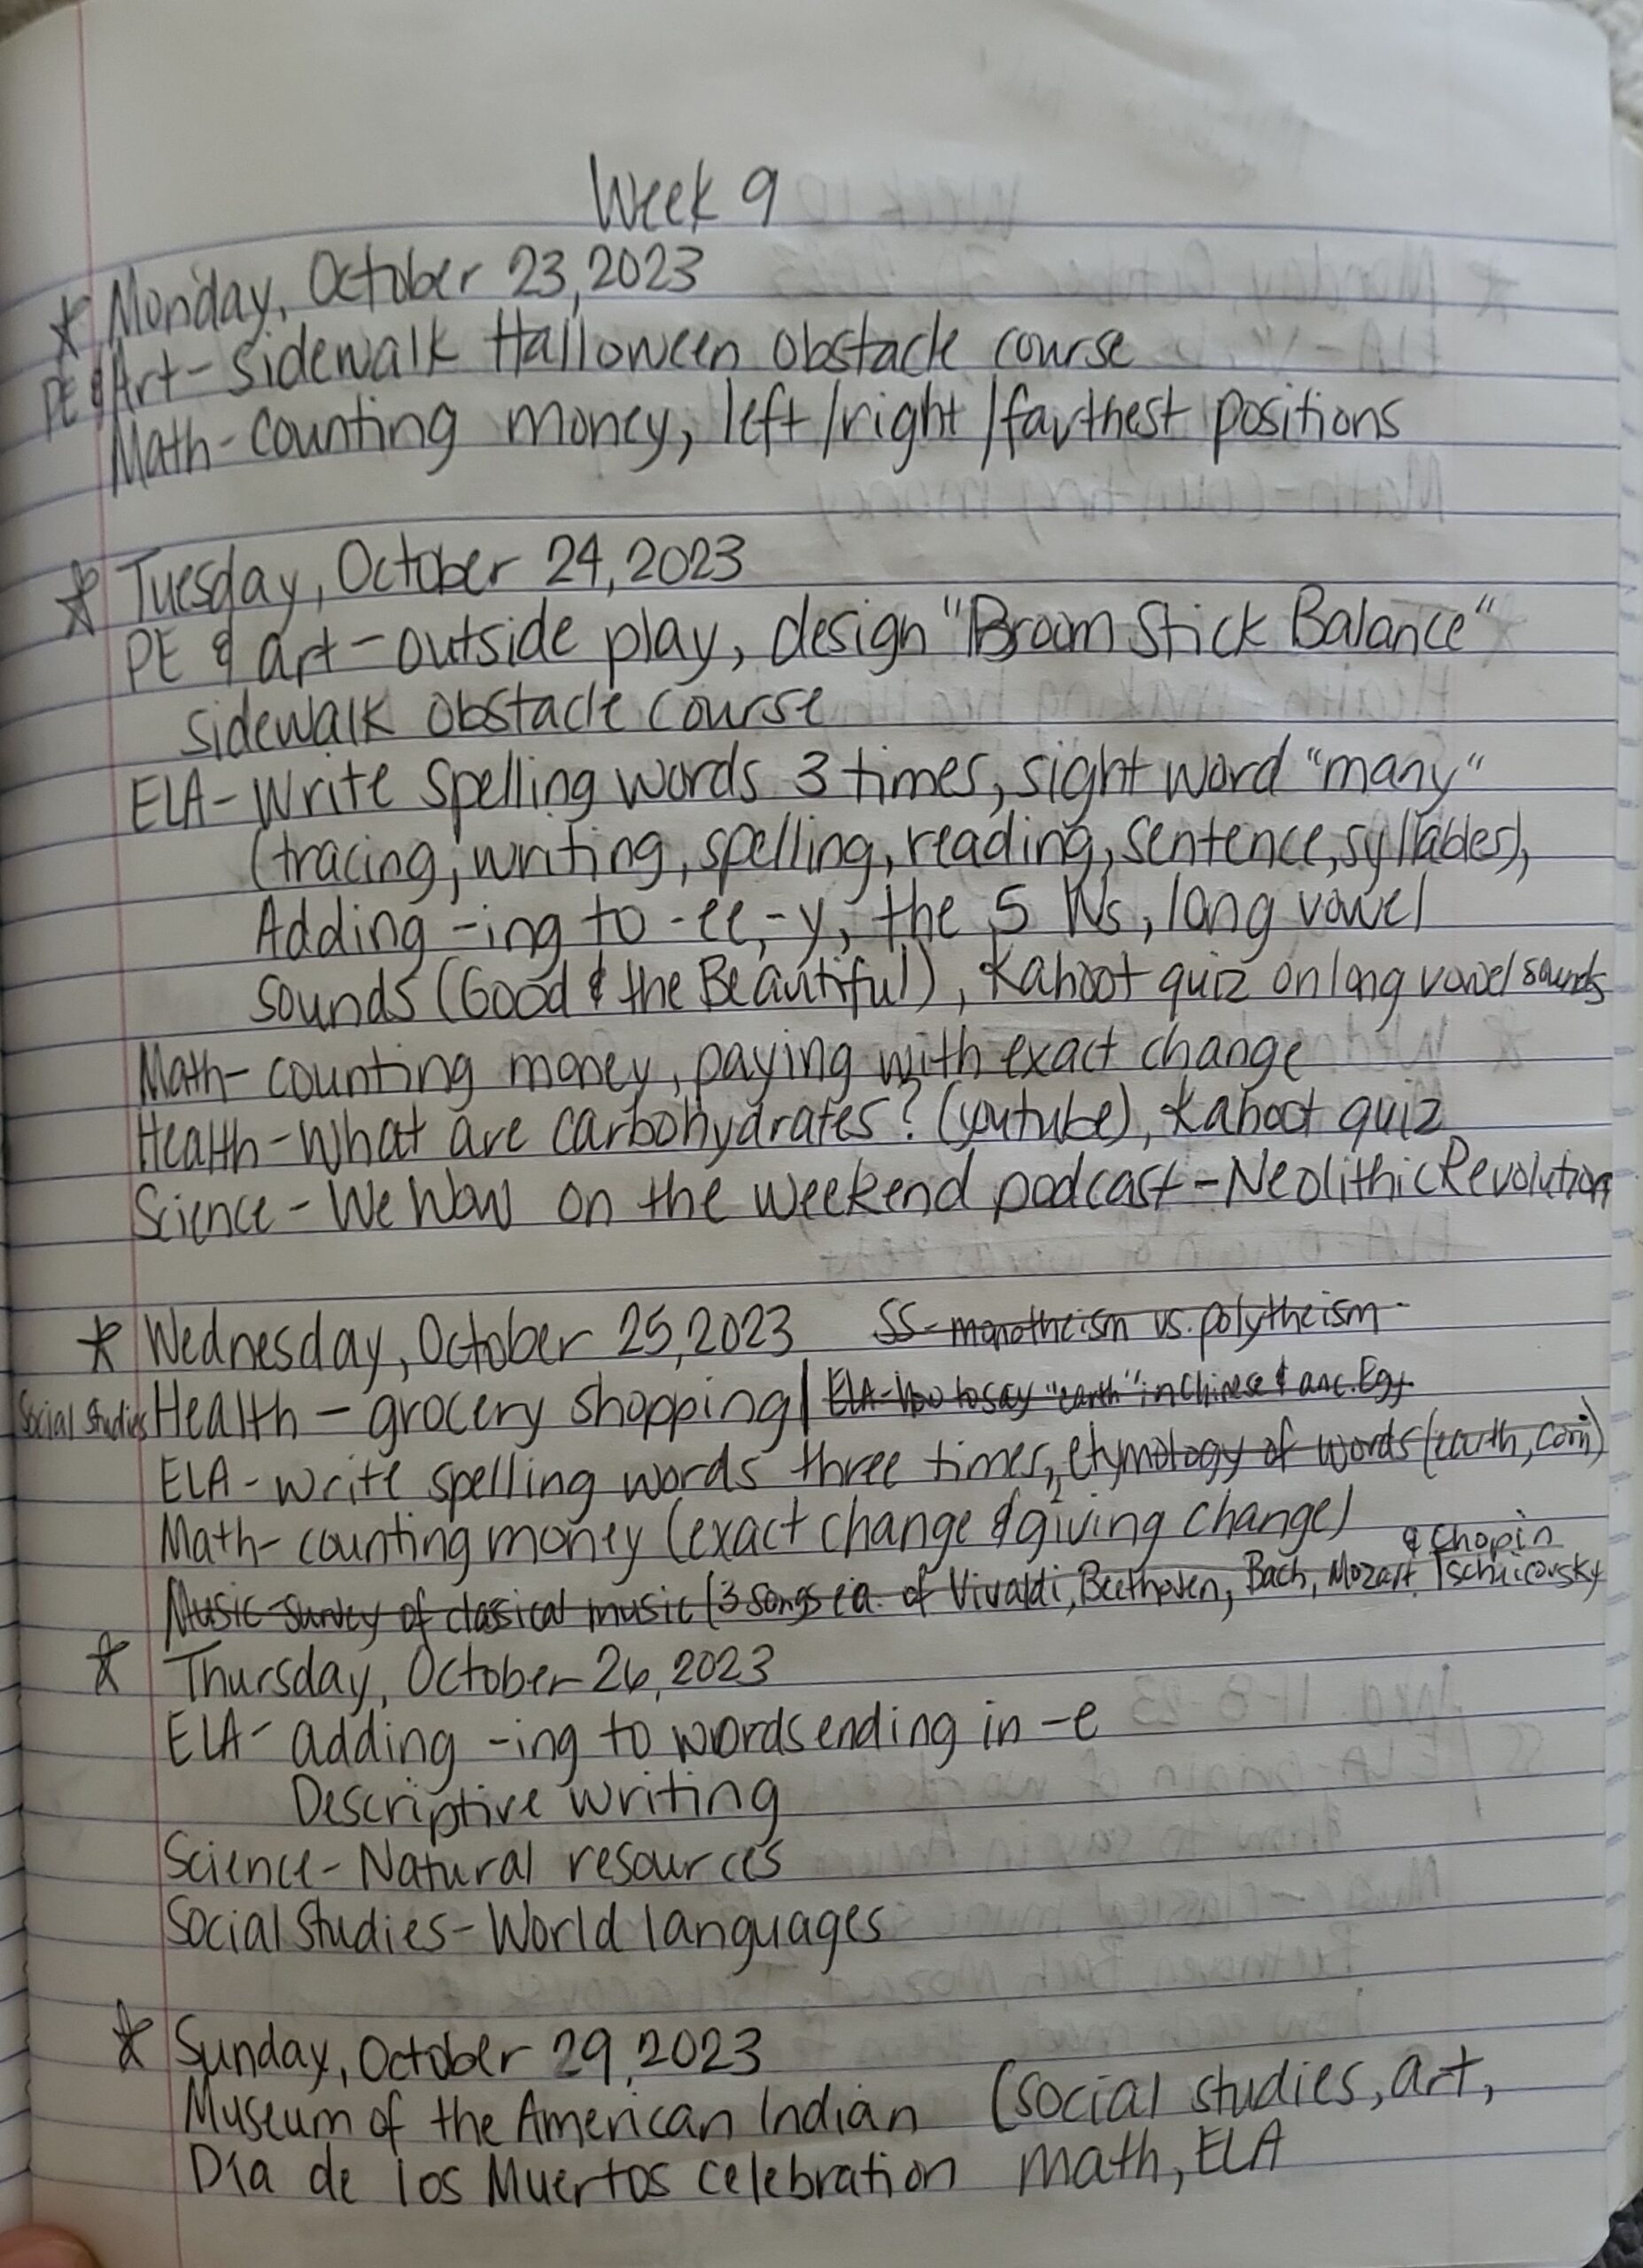 Week 9
* Monday, October 23, 2023
PE & Art - Sidewalk Halloween obstacle course
Math - Counting money, left/right/farthest positions
* Tuesday, October 24, 2023
PE & art - outside play, design "Broom Stick Balance"
sidewalk obstacle course
ELA - Write spelling words 3 times, sight word "many"
(tracing, writing, spelling, reading, sentence, syllables),
Adding -ing to -ee, -y, the 5 Ws, long vowel
sounds (Good & the Beautiful), Kahoot quiz on long vowel sounds
Math - counting money, paying with exact change
Health - What are carbohydrates? (youtube), Kahoot quiz
Science - We Wow on the weekend podcast - Neolithic Revolution
* Wednesday, October 25, 2023 SS - monotheism vs. polytheism
Social Studies Health - grocery shopping | ELA - how to say "earth" in Chinese & anc. Egy.
ELA - write spelling words three times, etymology of words (earth, corn)
Math - counting money (exact change & giving change)
& Chopin
Music - survey of classical music (3 songs ea. of Vivaldi, Beethoven, Bach, Mozart, Tschicovsky
* Thursday, October 26, 2023
ELA - adding -ing to words ending in -e
Descriptive writing
Science - Natural resources
Social Studies - World languages
* Sunday, October 29, 2023
Museum of the American Indian (social studies, art,
Dia de los Muertos celebration math, ELA